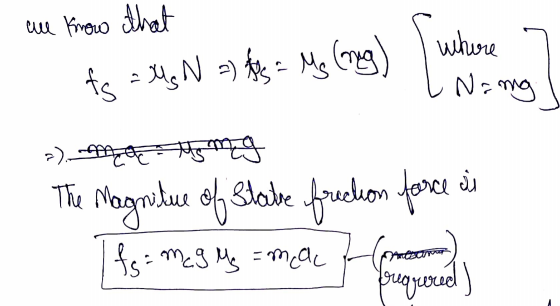 we know that
fs = μs N => fs = μs (mg) [where N = mg]
=> mcac = μs mcg
The Magnitue of State friction force is
fs = mcg μs = mcac — (required)